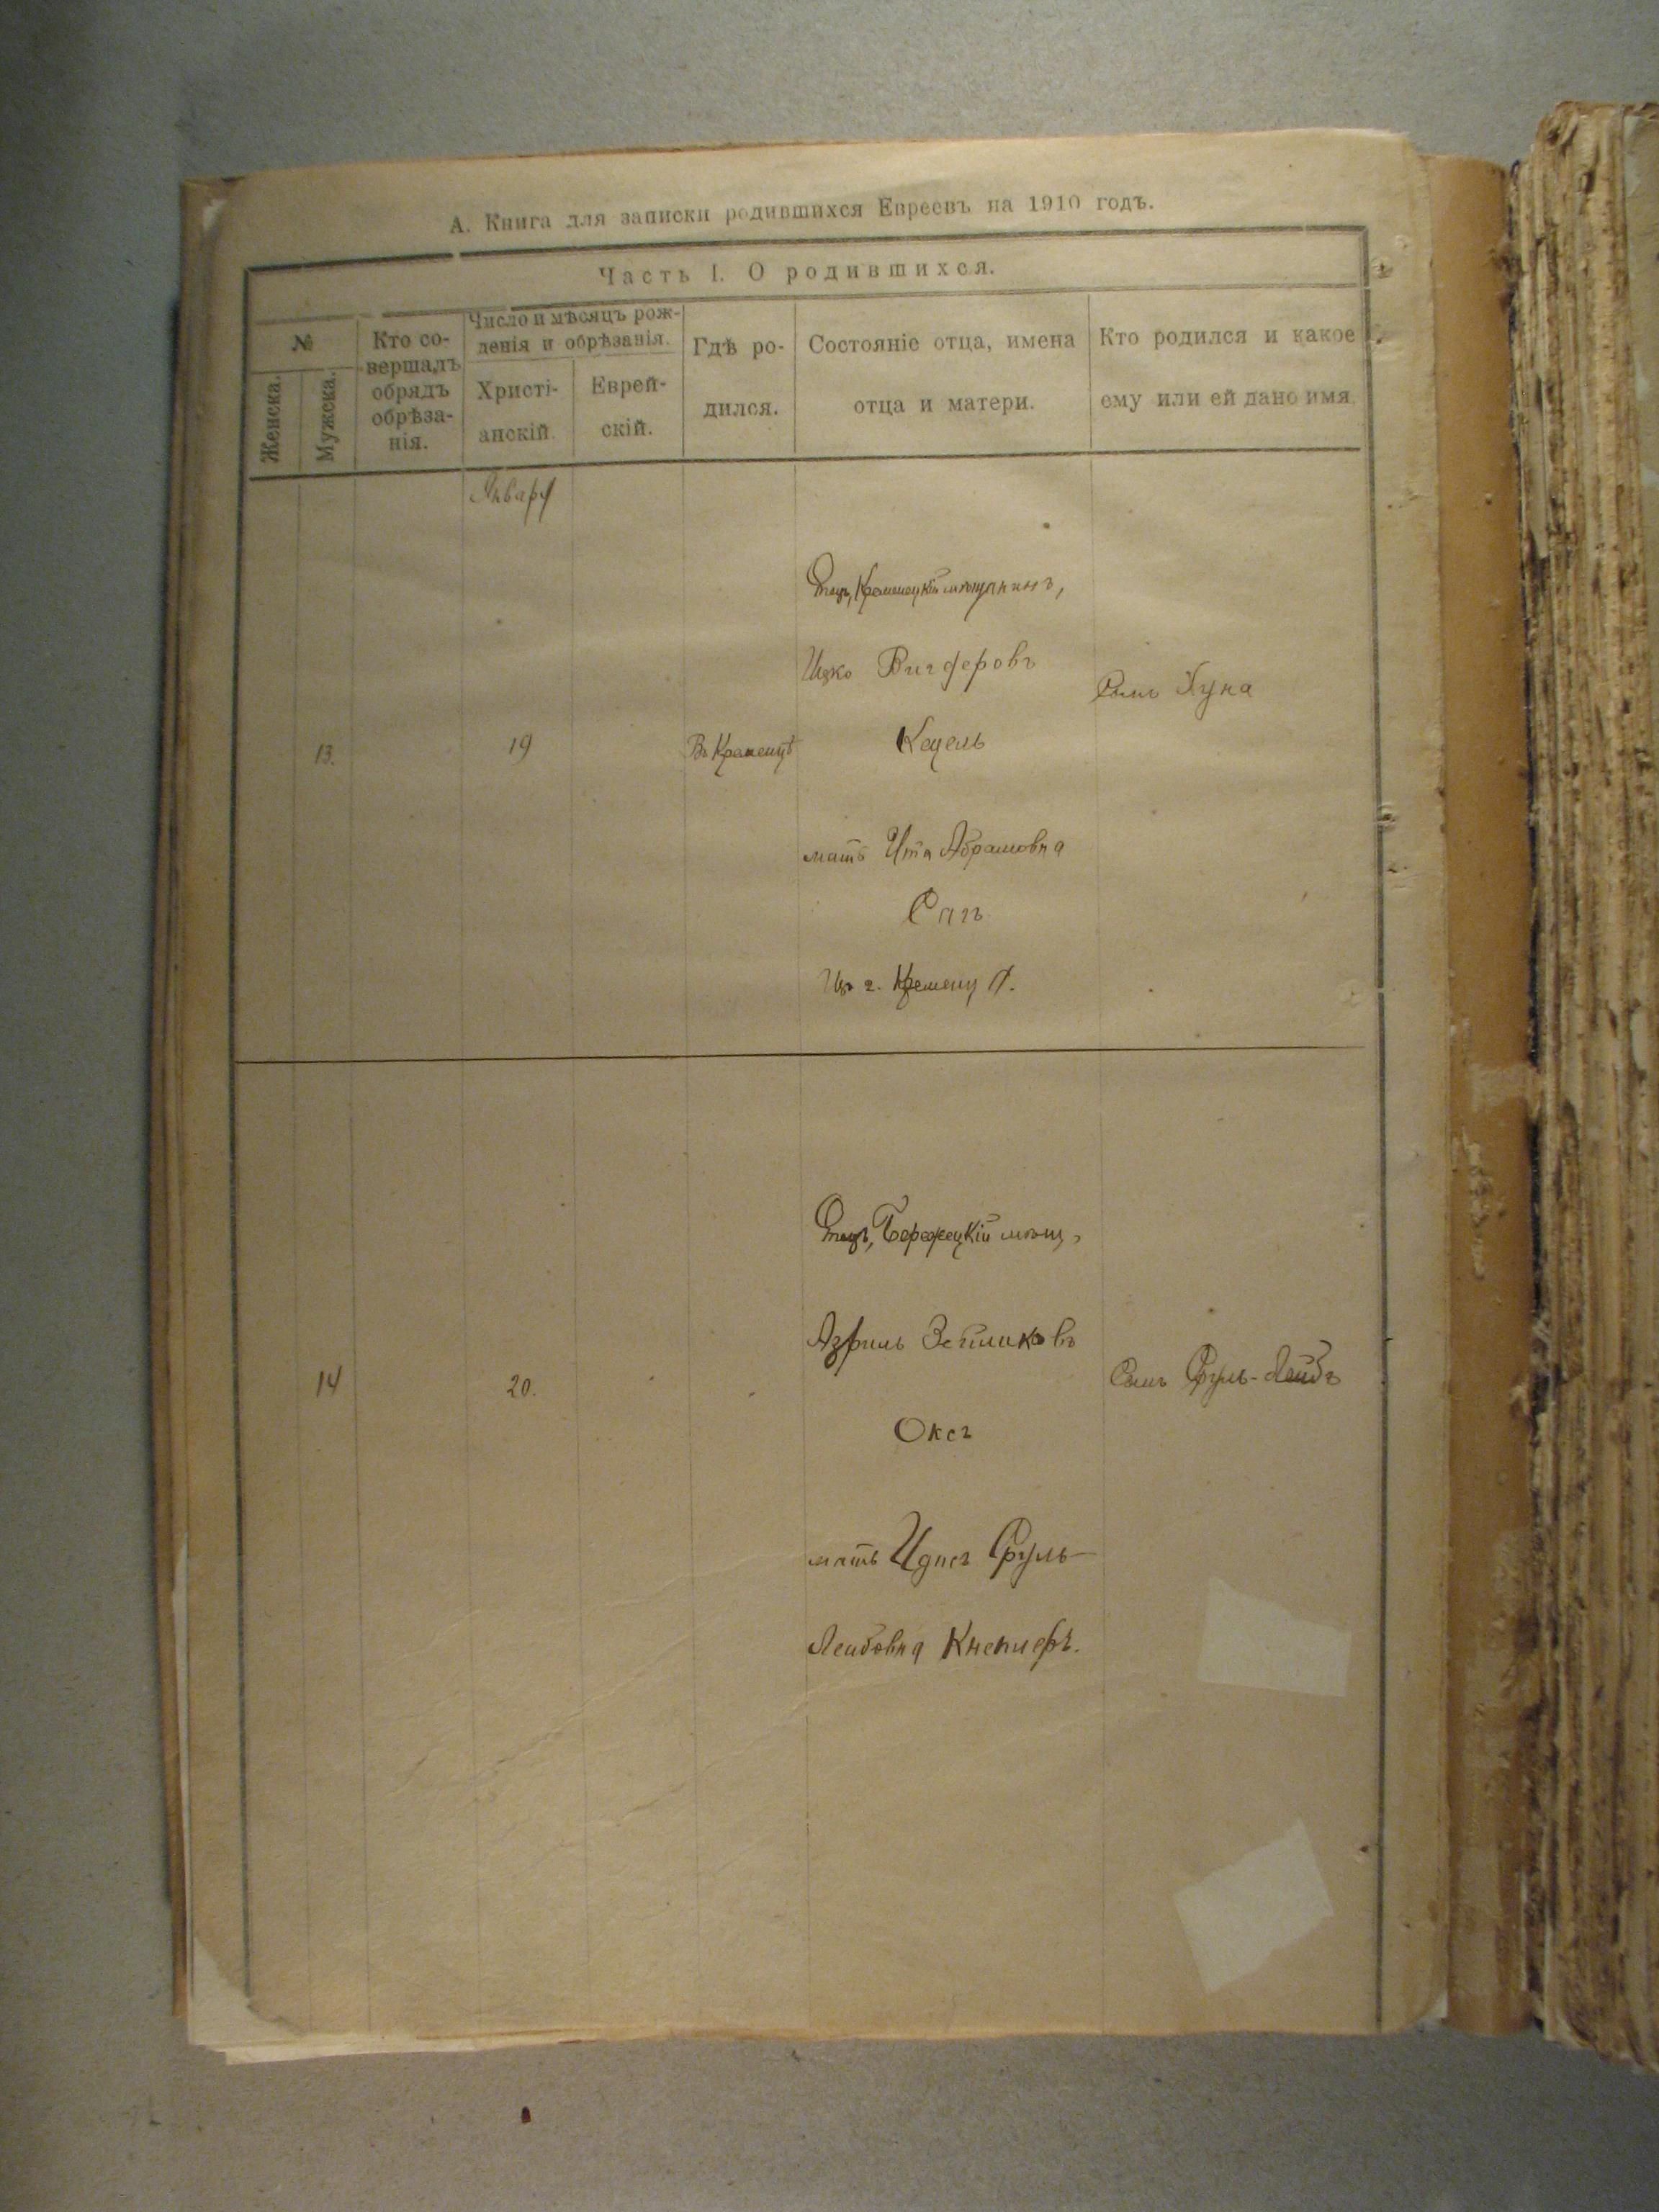 А. Книга для записки родившихся Евреевъ на 1910 годъ.
Часть I. О родившихся.
№
Женска.
Мужска.
Кто со-
вершалъ
обрядъ
обрѣза-
нія.
Число и мѣсяцъ рож-
денія и обрѣзанія.
Христі-
анскій.
Еврей-
скій.
Гдѣ ро-
дился.
Состояніе отца, имена
отца и матери.
Кто родился и какое
ему или ей дано имя.
Январь
13.
19
Въ Кременцѣ
Отецъ, Кременецкій мѣщанинъ,
Ицко Вигдеровъ
Кецель
мать Ита Абрамовна
Сагъ
Из г. Кременца.
Сынъ Хуна
14
20.
Отецъ, Бережецкій мѣщ,
Азриль Зейликовъ
Оксъ
мать Идисъ Сруль-
Лейбовна Кнеплеръ.
Сынъ Сруль-Лейбъ